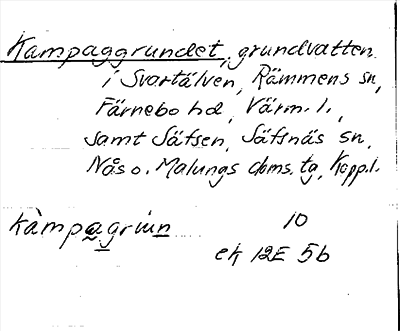 Kampaggrundet, grundvatten
i Svartälven, Rämmens sn,
Färnebo hd, Värm. l.,
samt Säfsen, Säfsnäs sn,
Nås o. Malungs doms. tg, Kopp. l.
kàmpagrùn 10
ek 12E 5b